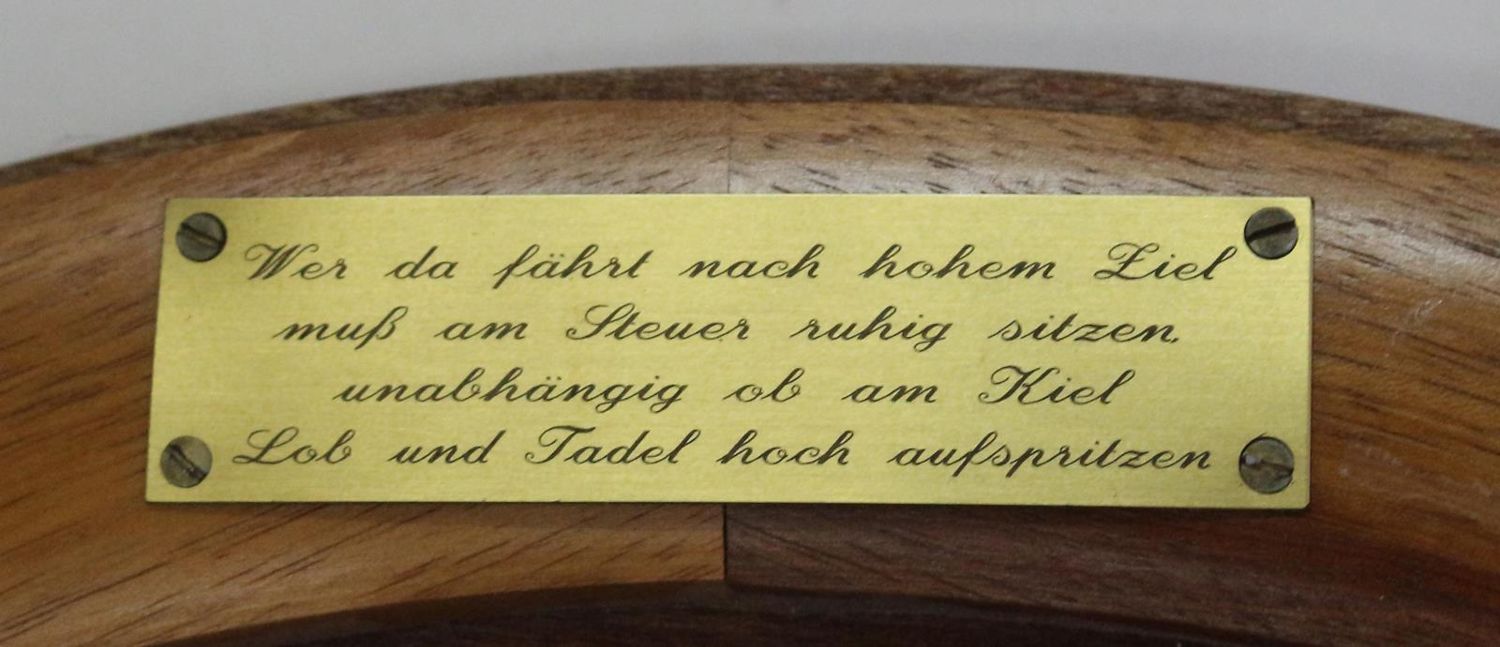 Wer da fährt nach hohem Ziel
muß am Steuer ruhig sitzen.
unabhängig ob am Kiel
Lob und Tadel hoch aufspritzen